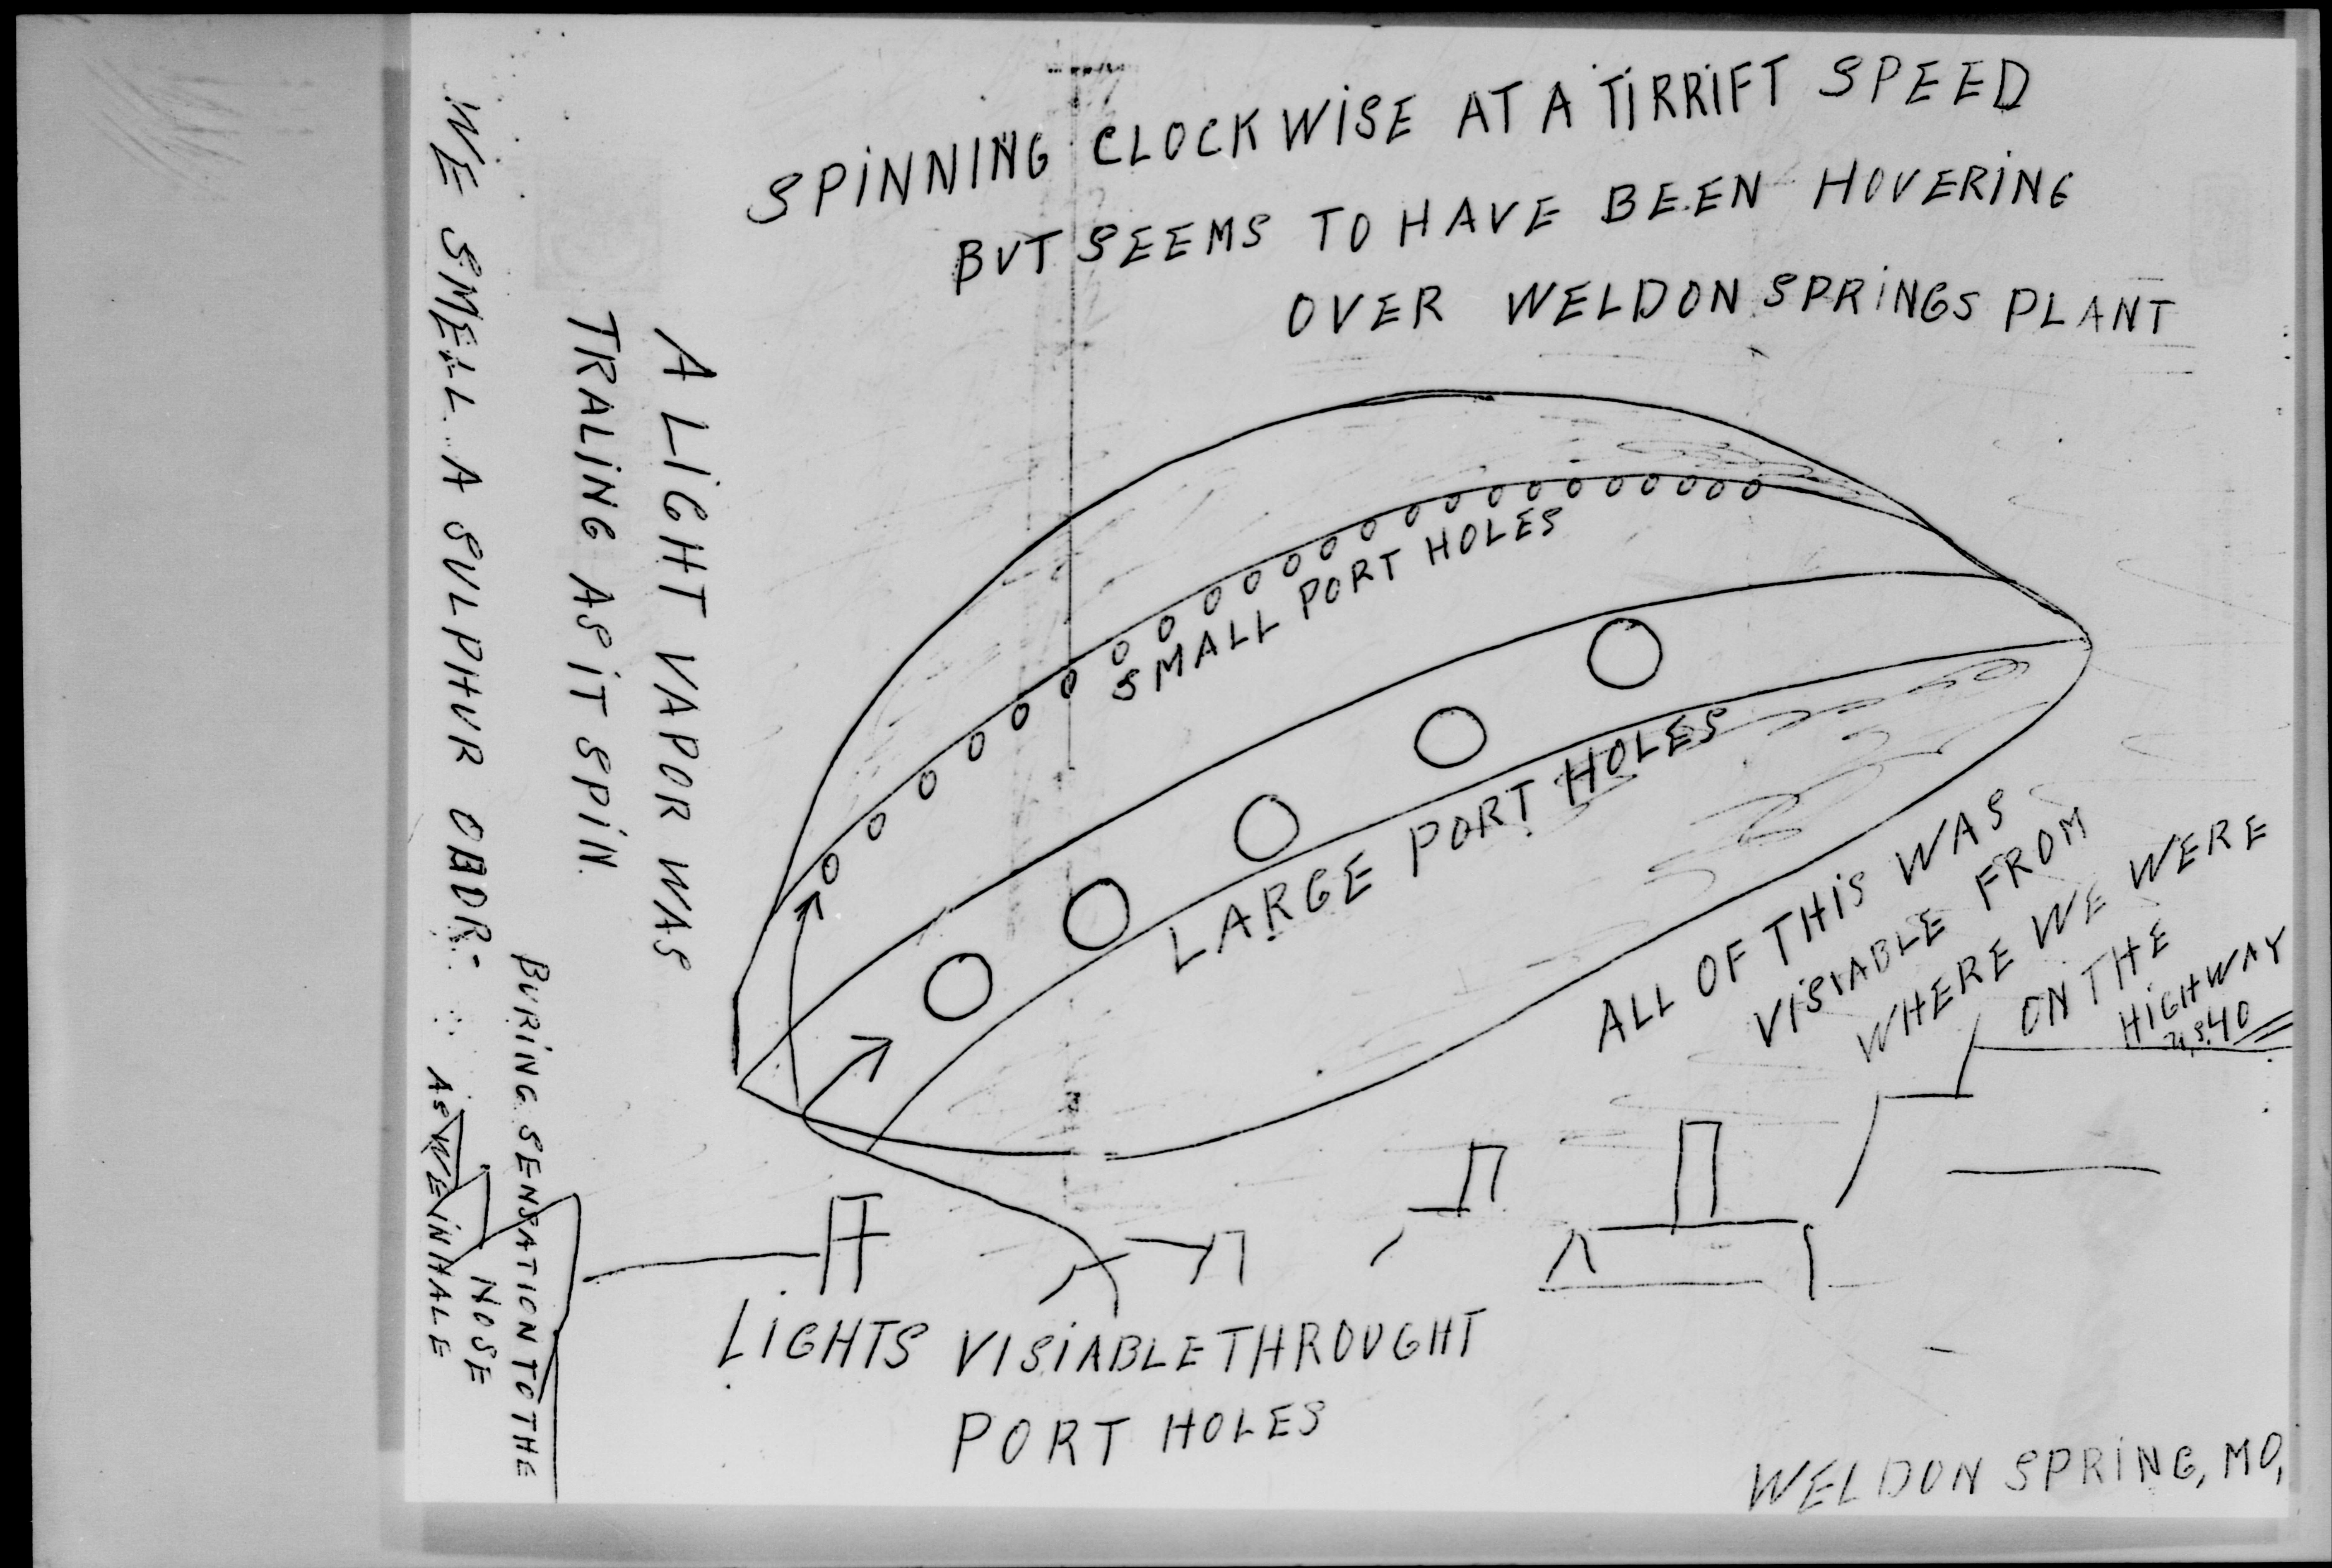 SPINNING CLOCKWISE AT A TIRRIFT SPEED
BUT SEEMS TO HAVE BEEN HOVERING
OVER WELDON SPRINGS PLANT
A LIGHT VAPOR WAS
TRALING AS IT SPIN
WE SMELL A SULPHUR ODOR-
BURING SENSATION TO THE
NOSE
AS WE INHALE
SMALL PORT HOLES
LARGE PORT HOLES
ALL OF THIS WAS
VISIABLE FROM
WHERE WE WERE
ON THE
HIGHWAY
40
LIGHTS VISIABLE THROUGHT
PORT HOLES
WELDON SPRING, MO,